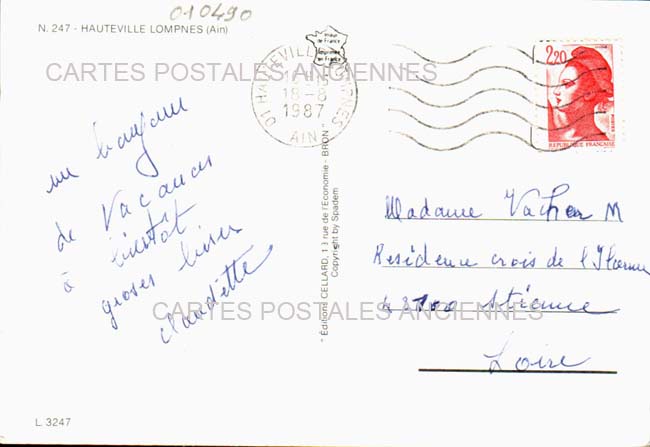 010490
N. 247 - HAUTEVILLE LOMPNES (Ain)
CARTES POSTALES ANCIENNES
01 HAUTEVILLE LOMPNES
18-8
1987
AIN
2,20
REPUBLIQUE FRANÇAISE
un bonjour
de Vacances
à bientôt
groses bises
claudette
" Éditions CELLARD, 13 rue de l'Economie - BRON "
Copyright by Spadem
Madame Vacher M
Residence crois de l'
42100 St
Loire
CARTES POSTALES ANCIENNES
L 3247